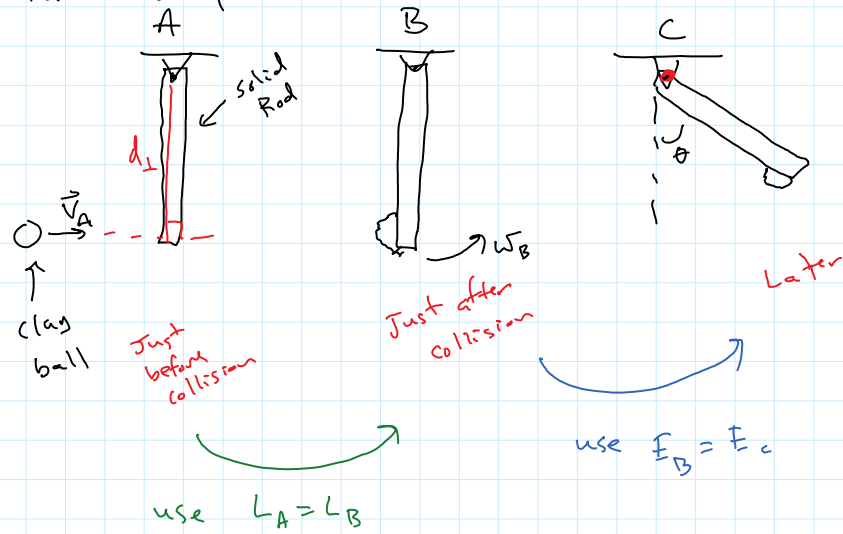 A
B
C
solid
Rod
d⊥
V⃗A
ωB
θ
clay
ball
Just
before
collision
Just after
collision
Later
use LA = LB
use EB = Ec